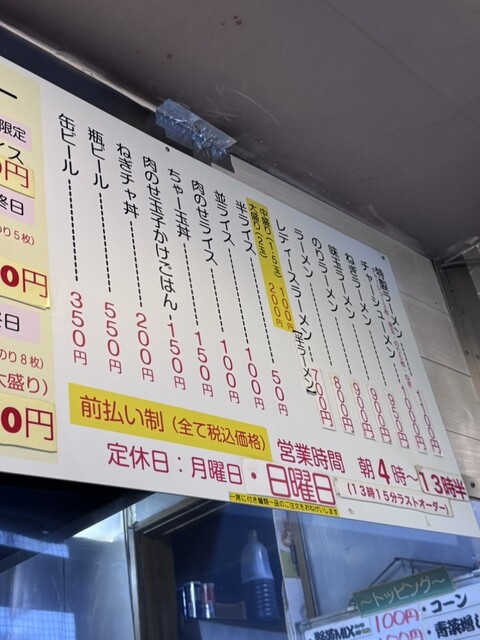 特製ラーメン
チャーシューメン
ねぎラーメン 950
味玉ラーメン 900円
のりラーメン 900円
ラーメン 800円
レディスラーメン(半ラーメン) 700円
中盛り(1.5玉) 100円
大盛り(2玉) 200円
半ライス 50円
並ライス 100円
肉のせライス 100円
ちゃー玉丼 150円
肉のせ玉子かけごはん 150円
ねぎチャ丼 200円
瓶ビール 550円
缶ビール 350円
限定
イス
0円
終日
のり5枚)
00円
終日
のり8枚)
大盛り)
00円
前払い制(全て税込価格)
営業時間 朝4時〜13時半
(13時15分ラストオーダー)
定休日:月曜日・日曜日
一席に付き麺類一品のご注文をおねがいします
〜トッピング〜
100円・コーン